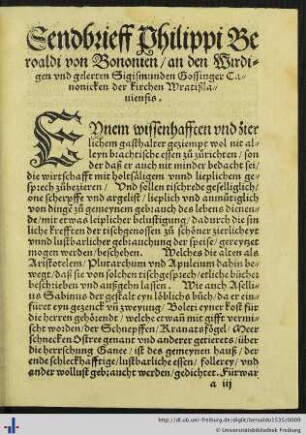 Sendbrieff Philippi Be
roaldi von Bononien / an den Wirdi-
gen vnd gelerten Sigismunden Gossinger Ca
nonicken der kirchen Wratißla-
uiensis.
EYnem wissenhafften vnd zier
lichem gasthalter geziempt wol nit al-
leyn brachtische essen zů zůrichten / son
der daß er auch nit minder bedacht sei /
die wirtschafft mit holtsäligem vnnd lieplichem ge-
sprech zůbezieren / Vnd sollen tischrede geselliglich /
one scherpffe vnd argelist / lieplich vnd anmůtiglich
von dingē zů gemeynem gebrauch des lebens dienen-
de / mit etwas leiplicher belustigung / dadurch die sin
liche kreffren der tischgenossen zů schöner zierlicheyt
vnnd lustbarlicher gebrauchung der speise / gereytzet
mogen werden / beschehen. Welches die alten als
Aristotelem Plutarchum vnd Apuleium dahin be-
wegt / daß sie von solchen tischgesprech / etliche bücher
beschrieben vnd außgehn lassen. Wie auch Aselli-
us Sabinus der gestalt eyn löblichs bůch / da er ein-
füret eyn gezenck vñ zweyung /
der Schnepffen / Kranatsfögel / Meer
schnecken Ostree genant vnd anderer getierets / über
die herrschung Ganee / ist des gemeynen hauß / der
ende schleckhafftige / lustbarliche essen / follerey / vnd
ander wollust gebraucht werden / gedichtet. Fürwar
a iij
http://dl.ub.uni-freiburg.de/diglit/beroaldo1535/0009
© Universitätsbibliothek Freiburg